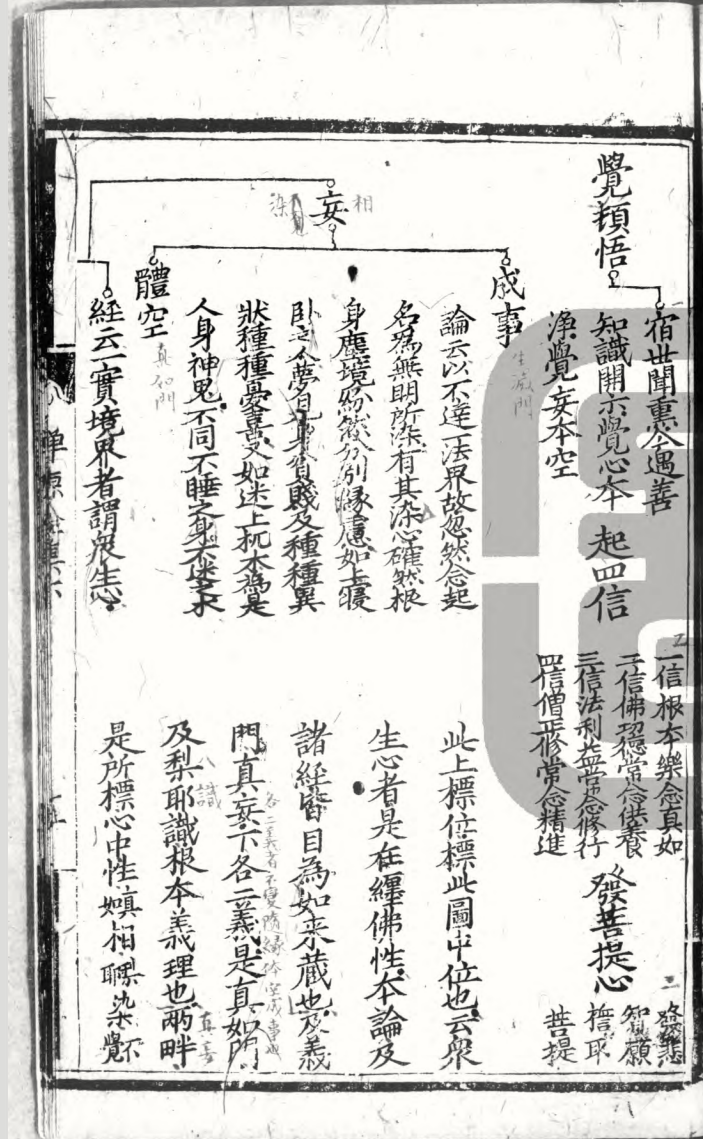 覺頓悟
宿世聞熏今遇善
知識開示覺心本
淨覺妄本空
起四信
一信根本樂念真如
二信佛功德常念供養
三信法利益常念修行
四信僧正修常念精進
發菩提心
發悲
智願
擔取
菩提
相
妄
染
成事
生滅門
論云以不達一法界故忽然念起
名為無明所染有其染心確然根
身塵境紛然分別緣慮如上寢
臥之人夢見身貧賤及種種異
狀種種憂喜又如迷上杌木為是
人身神鬼不同不睡之身不迷之木
體空
真如門
經云一實境界者謂眾生心
此上標位標此圖中位也云眾
生心者是在纏佛性本論及
諸經皆目為如來藏也及義
各二義者不變隨緣體空成事也
門真妄下各二義是真如門
八識
及梨耶識根本義理也兩畔
真妄
是所標心中性真相染覺不